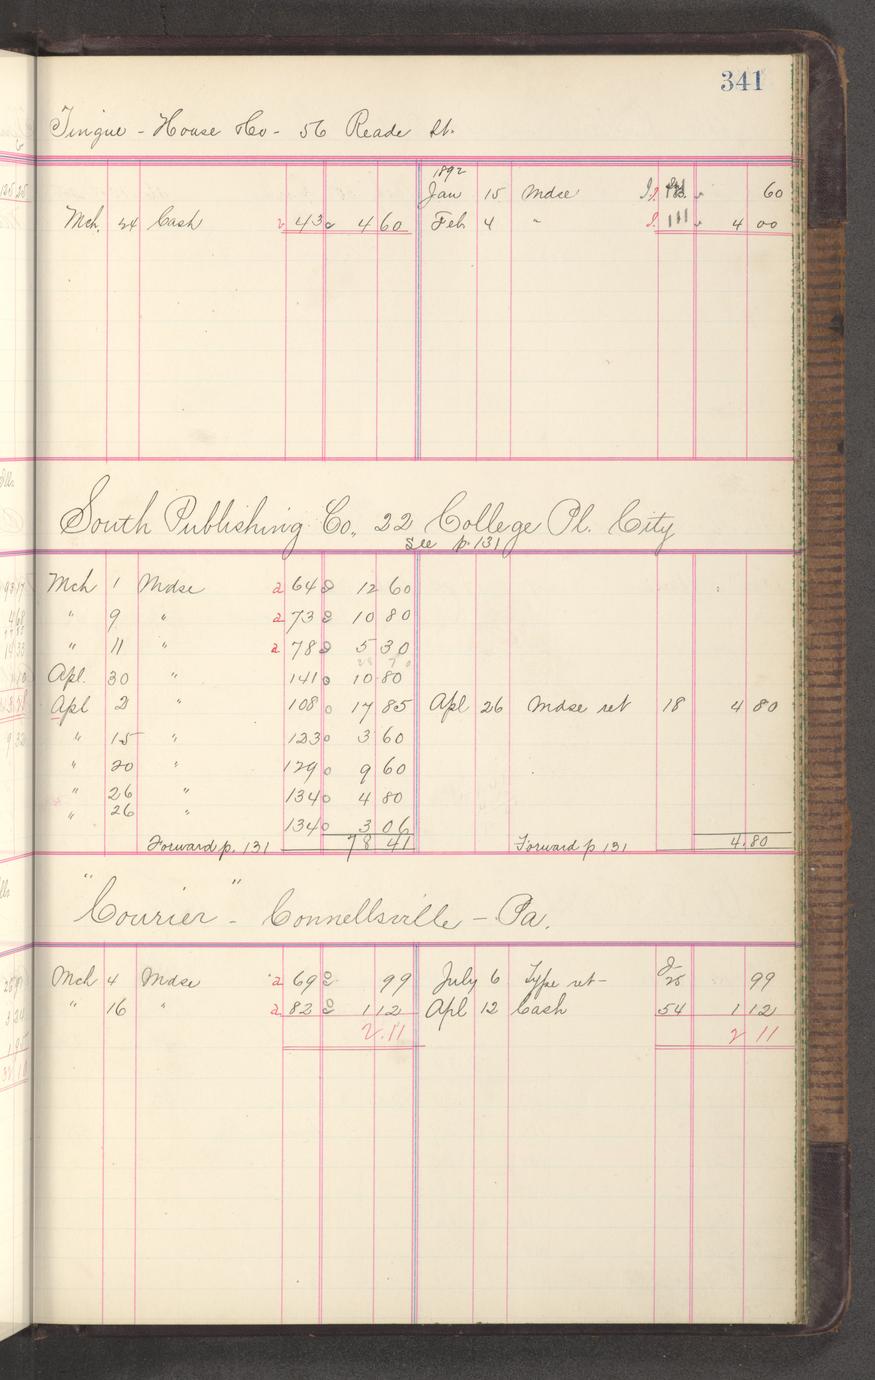 341
Tingue - House & Co - 56 Reade St.
1892
Jan 15 Mdse 60
Mch. 24 Cash 2 43 4 60 Feb 4 " 111 4 00
South Publishing Co., 22 College Pl. City
See p. 131
Mch 1 Mdse a 64 12 60
" 9 " a 73 10 80
" 11 " a 78 5 30
28 70
Apl. 30 " 141 10 80
Apl 2 " 108 17 85 Apl 26 Mdse ret 18 4 80
" 15 " 123 3 60
" 20 " 129 9 60
" 26 " 134 4 80
" 26 " 134 3 06
Forward p. 131 78 41 Forward p 131 4.80
"Courier" - Connellsville - Pa.
Mch 4 Mdse a 69 99 July 6 Type ret - J 25 99
" 16 " a 82 1 12 Apl 12 Cash 54 1 12
2.11 2 11